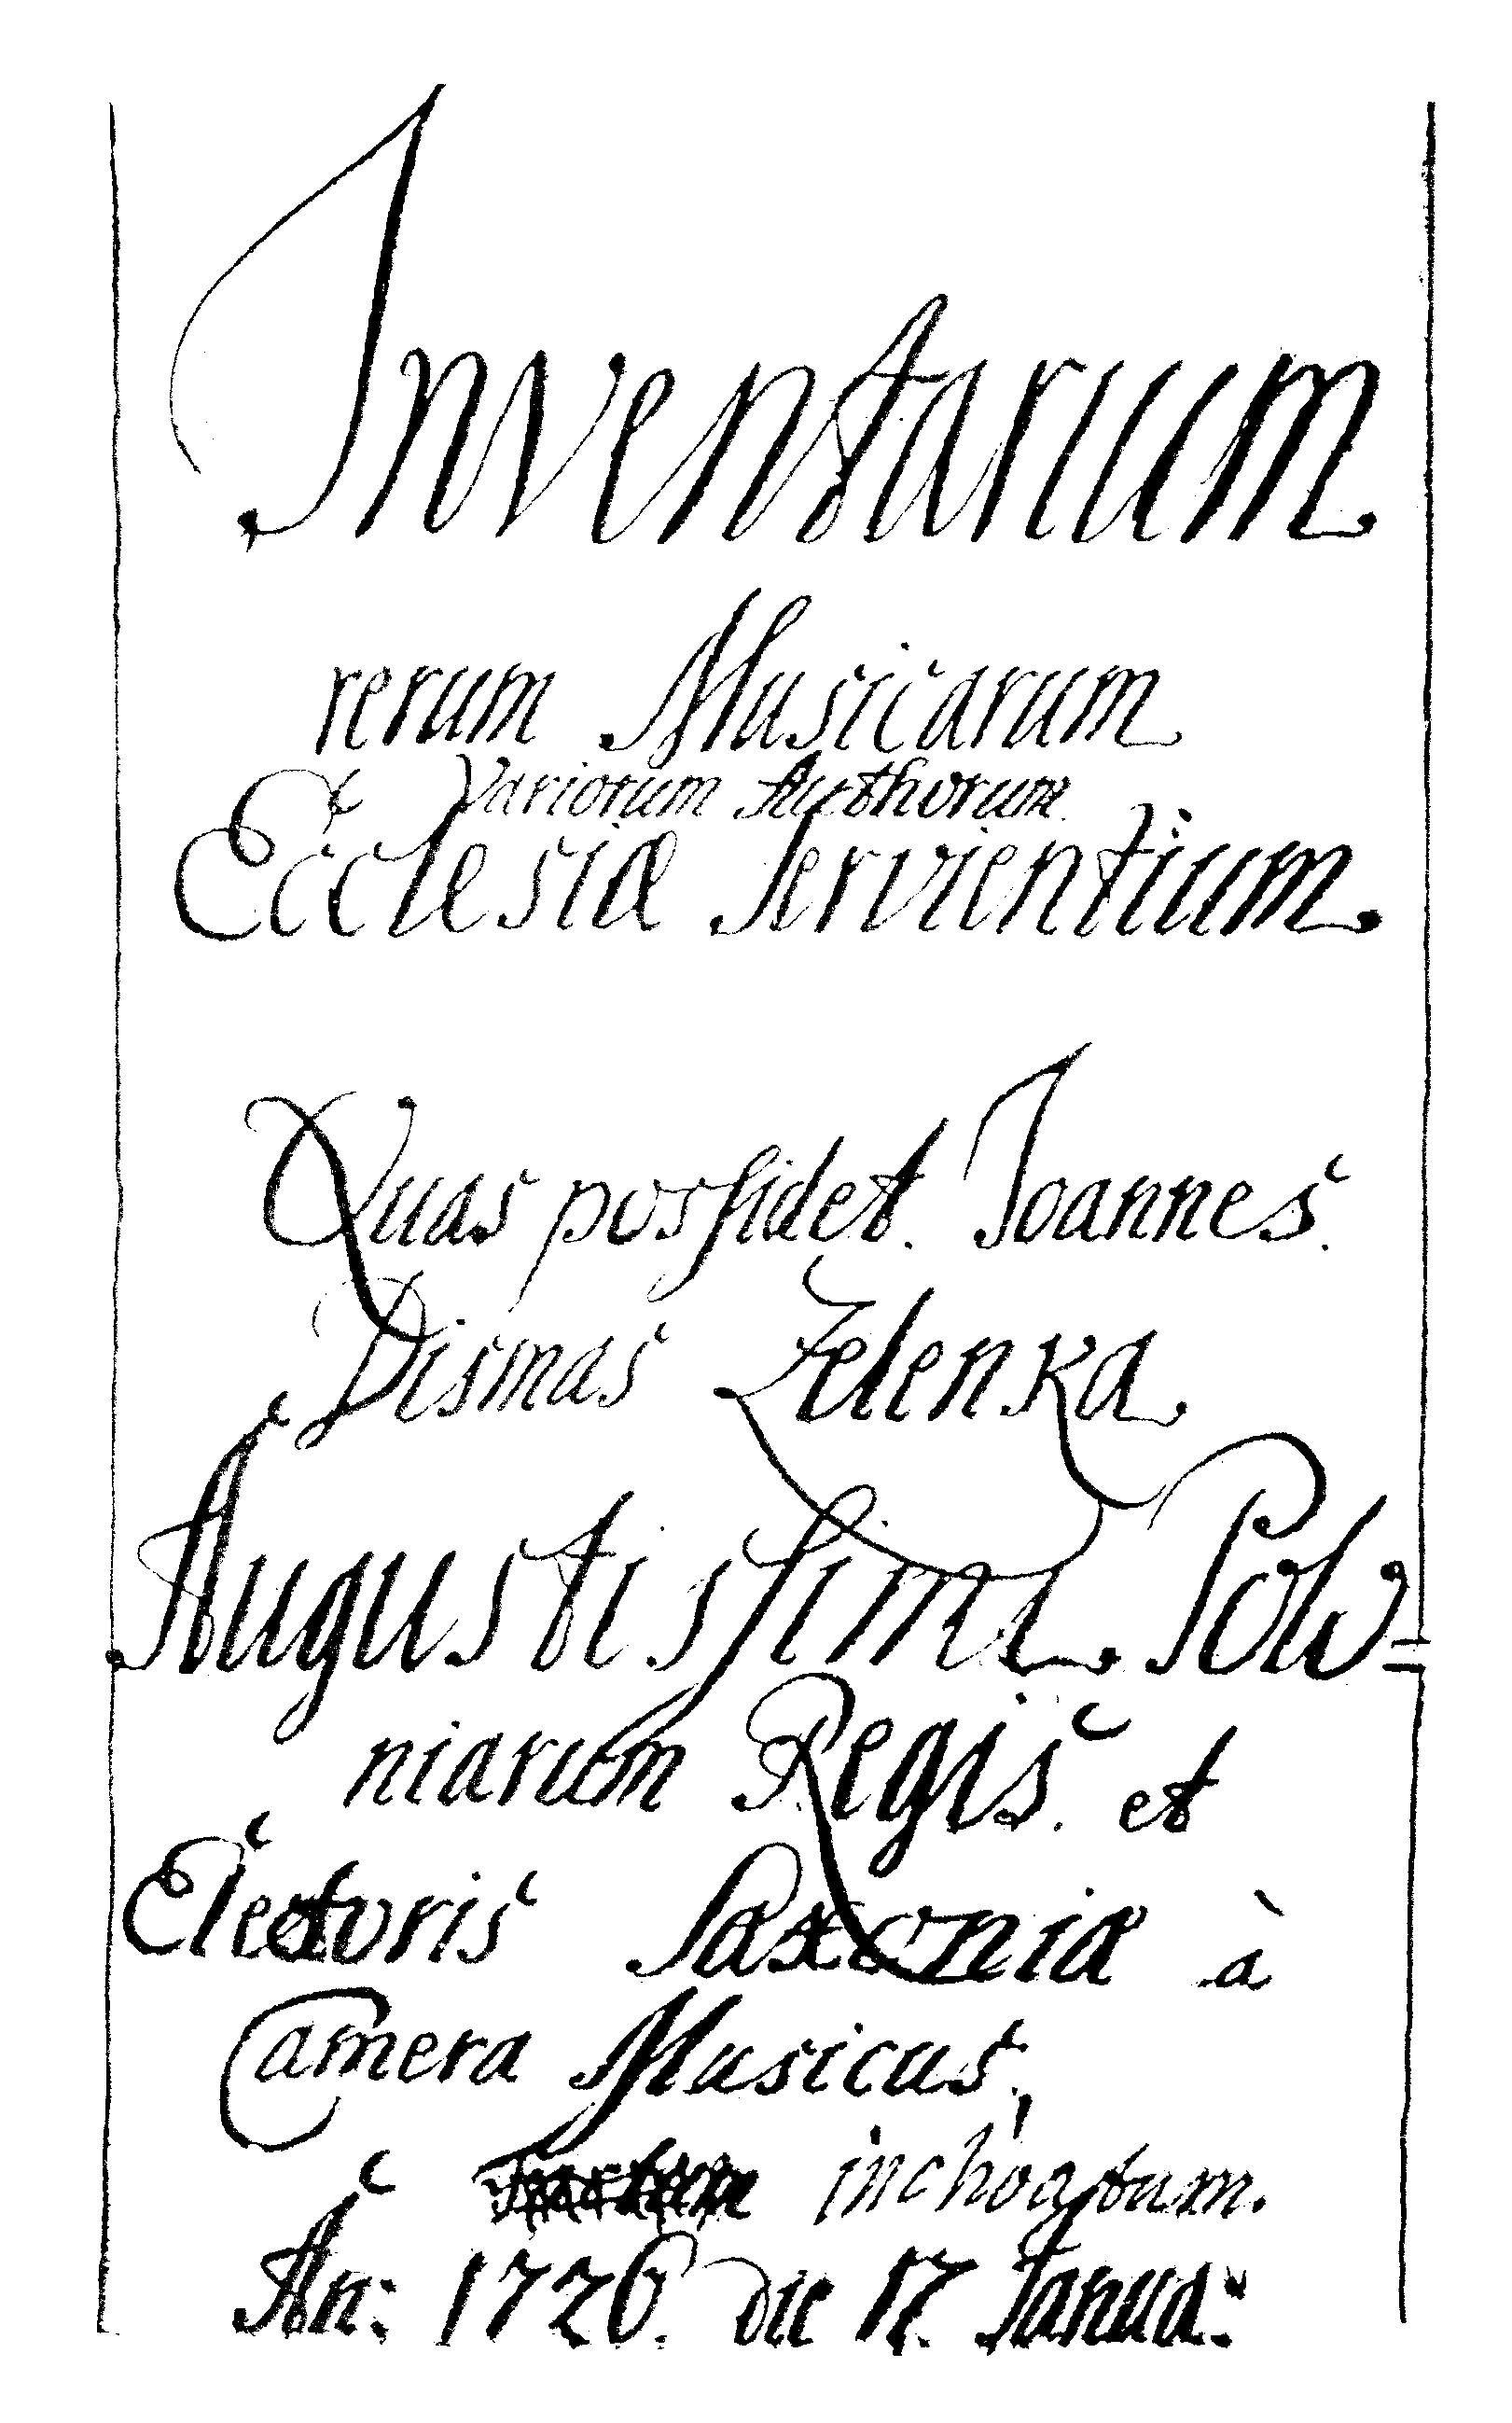 Inventarium
rerum Musicarum
Variorum Authorum
Ecclesiæ Servientium
Quas possidet. Joannes.
Dismas Zelenka
Augustissimi Polo=
niarum Regis. et
Electoris Saxoniæ à
Camera Musicus.
inchoatum.
An: 1726. die 17. Janua: